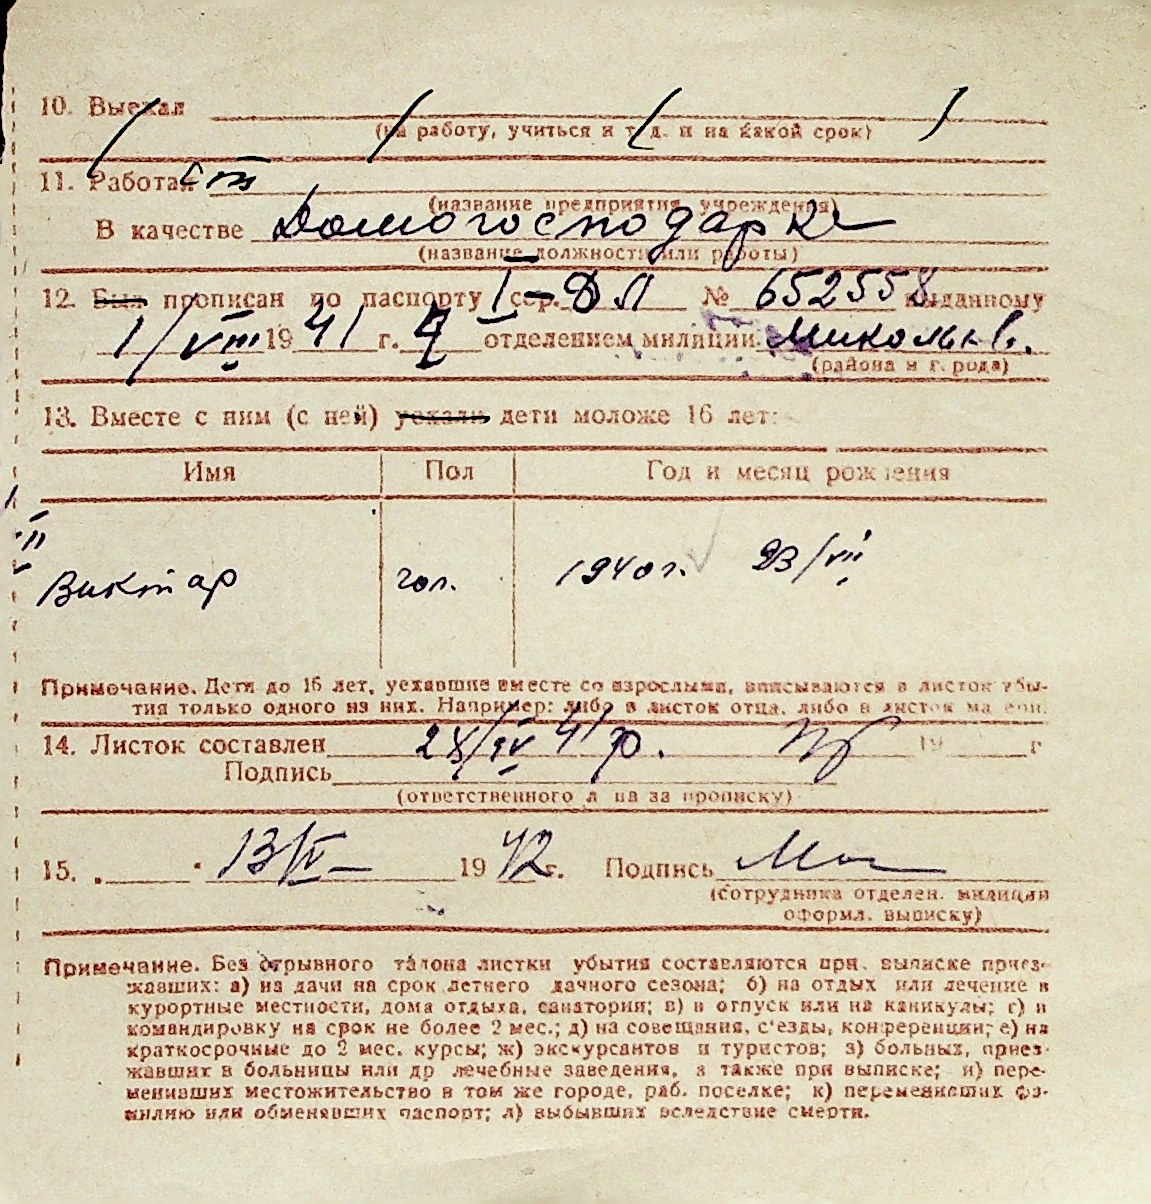 10. Выехал
(на работу, учиться и т. д. и на какой срок)
11. Работал
(название предприятия учреждения)
В качестве Домогосподарка
(название должности или работы)
12. Был прописан по паспорту I- сер. ДЛ № 652558 выданному
1/VIII 1941 г. отделением милиции Миколаїв.
(района и города)
13. Вместе с ним (с ней) уехали дети моложе 16 лет:
Имя Пол Год и месяц рождения
Виктор чол. 1940 г. 23/VII
Примечание. Дети до 16 лет, уехавшие вместе со взрослыми, вписываются в листок убы-
тия только одного из них. Например: либо в листок отца, либо в листок матери.
14. Листок составлен 41 р. 19 г
Подпись
(ответственного лица за прописку)
15. 13/IV 1942 г. Подпись
(сотрудника отделен. милиции
оформл. выписку)
Примечание. Без отрывного талона листки убытия составляются при выписке приез-
жавших: а) на дачи на срок летнего дачного сезона; б) на отдых или лечение в
курортные местности, дома отдыха, санатории; в) в отпуск или на каникулы; г) в
командировку на срок не более 2 мес.; д) на совещания, с'езды, конференции; е) на
краткосрочные до 2 мес. курсы; ж) экскурсантов и туристов; з) больных, приез-
жавших в больницы или др лечебные заведения, а также при выписке; и) пере-
менивших местожительство в том же городе, раб. поселке; к) переменивших фа-
милию или обменявших паспорт; л) выбывших вследствие смерти.